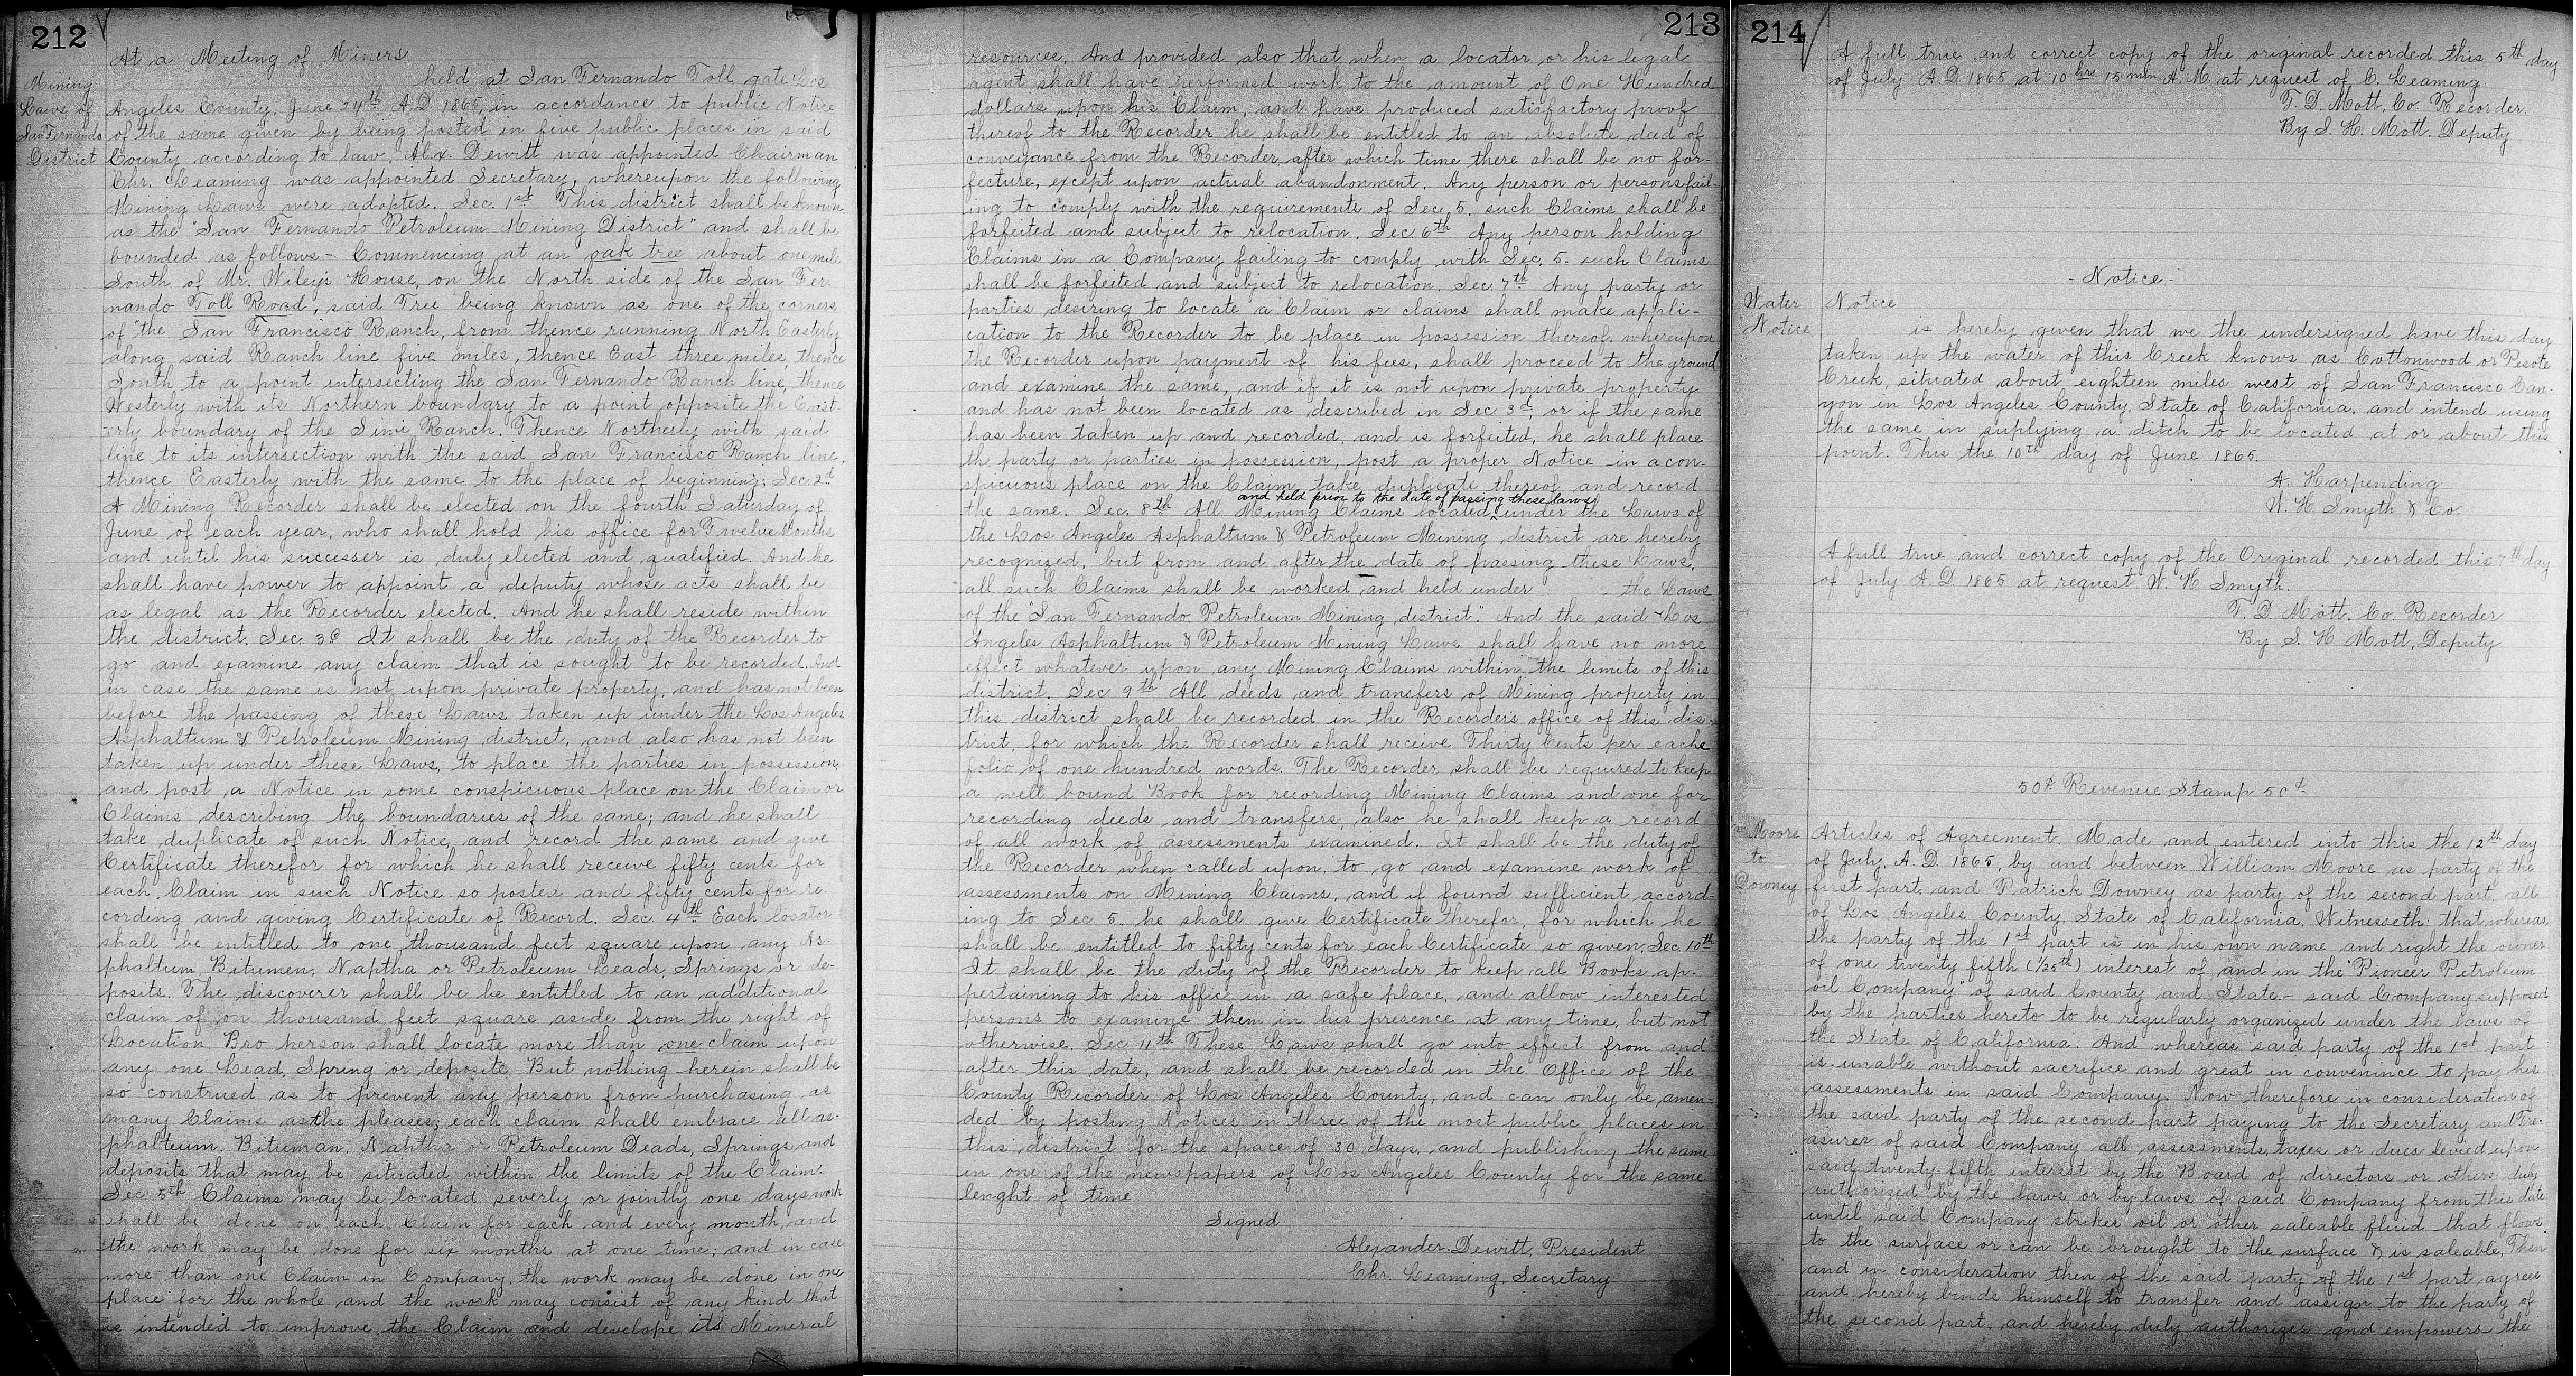 212
Mining
Laws of
San Fernando
District
At a Meeting of Miners
held at San Fernando Toll gate Los
Angeles County, June 24th A.D. 1865, in accordance to public Notice
of the same given by being posted in five public places in said
County according to law, Alx. Dewitt was appointed Chairman
Chr. Leaming was appointed Secretary, whereupon the following
Mining Laws were adopted. Sec. 1st This district shall be known
as the "San Fernando Petroleum Mining District" and shall be
bounded as follows - Commencing at an oak tree about one mile
South of Mr. Wiley's House, on the North side of the San Fer-
nando Toll Road, said Tree being known as one of the corners
of "the San Francisco Ranch, from thence running North Easterly
along said Ranch line five miles, thence East three miles, thence
South to a point intersecting the San Fernando Ranch line, thence
Westerly with its Northern boundary to a point opposite the East-
erly boundary of the Simi Ranch. Thence Northerly with said
line to its intersection with the said San Francisco Ranch line,
thence Easterly with the same to the place of beginning; Sec. 2d
A Mining Recorder shall be elected on the fourth Saturday of
June of each year, who shall hold his office for Twelve Months
and until his successer is duly elected and qualified. And he
shall have power to appoint a deputy whose acts shall be
as legal as the Recorder elected. And he shall reside within
the district. Sec. 3d It shall be the duty of the Recorder to
go and examine any claim that is sought to be recorded. And
in case the same is not upon private property, and has not been
before the passing of these Laws taken up under the Los Angeles
Asphaltum & Petroleum Mining district, and also has not been
taken up under these Laws, to place the parties in possession,
and post a Notice in some conspicuous place on the Claim or
Claims describing the boundaries of the same; and he shall
take duplicate of such Notice, and record the same and give
Certificate therefor for which he shall receive fifty cents for
each Claim in such Notice so posted and fifty cents for re-
cording and giving Certificate of Record. Sec. 4th Each locator
shall be entitled to one thousand feet square upon any As-
phaltum, Bitumen, Naptha or Petroleum Leads, Springs or de-
posits. The discoverer shall be be entitled to an additional
claim of on thousand feet square aside from the right of
Location. Bro person shall locate more than one claim upon
any one Lead, Spring or deposite. But nothing herein shall be
so construed as to prevent any person from purchasing as
many Claims as the pleases; each claim shall embrace all as-
phalteum, Bituman, Naptha or Petroleum Deads, Springs, and
deposits that may be situated within the limits of the Claim.
Sec 5th Claims may be located severly or jointly one days work
shall be done on each Claim for each and every month, and
the work may be done for six months at one time; and in case
more than one Claim in Company, the work may be done in one
place for the whole and the work may consist of any kind that
is intended to improve the Claim and develope its Mineral
213
resources. And provided also that when a locator or his legal
agent shall have performed work to the amount of One Hundred
dollars upon his Claim, and have produced satisfactory proof
thereof to the Recorder he shall be entitled to an absolute deed of
conveyance from the Recorder, after which time there shall be no for-
fecture, except upon actual abandonment. Any person or persons fail-
ing to comply with the requirements of Sec. 5. such Claims shall be
forfeited and subject to relocation. Sec 6th Any person holding
Claims in a Company failing to comply with Sec. 5. such Claims
shall be forfeited and subject to relocation. Sec 7th Any party or
parties desiring to locate a Claim or claims shall make appli-
cation to the Recorder to be place in possession thereof, whereupon
the Recorder upon payment of his fees, shall proceed to the ground
and examine the same, and if it is not upon private property
and has not been located as described in Sec 3d, or if the same
has been taken up and recorded, and is forfeited, he shall place
the party or parties in possession, post a proper Notice in a con-
spicuous place on the Claim, take duplicate thereof and record
and held prior to the date of passing these laws
the same. Sec. 8th All Mining Claims located under the Laws of
the Los Angeles Asphaltum & Petroleum Mining district are hereby
recognized, but from and after the date of passing these Laws,
all such Claims shall be worked and held under the Laws
of the "San Fernando Petroleum Mining district". And the said Los
Angeles Asphaltum & Petroleum Mining Laws shall have no more
effect whatever upon any Mining Claims within the limits of this
district. Sec 9th All deeds and transfers of Mining property in
this district shall be recorded in the Recorder's office of this dis-
trict, for which the Recorder shall receive Thirty Cents per eache
folio of one hundred words. The Recorder shall be required to keep
a well bound Book for recording Mining Claims and one for
recording deeds and transfers, also he shall keep a record
of all work of assessments examined. It shall be the duty of
the Recorder when called upon, to go and examine work of
assessments on Mining Claims, and if found sufficient accord-
ing to Sec 5. he shall give Certificate therefor, for which he
shall be entitled to fifty cents for each Certificate so given. Sec. 10th
It shall be the duty of the Recorder to keep all Books ap-
pertaining to his office in a safe place, and allow interested
persons to examine them in his presence at any time, but not
otherwise. Sec. 11th These Laws shall go into effect from and
after this date, and shall be recorded in the Office of the
County Recorder of Los Angeles County, and can only be amen-
ded by posting Notices in three of the most public places in
this district for the space of 30 days, and publishing the same
in one of the newspapers of Los Angeles County for the same
lenght of time
Signed
Alexander Dewitt, President
Chr. Leaming Secretary
214
A full true and correct copy of the original recorded this 5th day
of July A.D. 1865 at 10 hrs 15 min A.M at request of C. Leaming
T. D. Mott, Co. Recorder.
By S. H. Mott. Deputy
- Notice -
Water
Notice
Notice
is hereby given that we the undersigned have this day
taken up the water of this Creek knows as Cottonwood or Pesote
Creek, situated about eighteen miles west of San Francisco Can-
yon in Los Angeles County, State of California, and intend using
the same in suplying a ditch to be located at or about this
point. This the 10th day of June 1865.
A. Harpending
W. H Smyth & Co.
A full true and correct copy of the Original recorded this 7th day
of July A.D. 1865 at request W. H Smyth.
T. D Mott. Co. Recorder
By S. H Mott, Deputy
50c. Revenue Stamp 50c.
Wm Moore
to
Downey
Articles of Agreement. Made and entered into this the 12th day
of July, A.D. 1865, by and between William Moore as party of the
first part, and Patrick Downey as party of the second part, all
of Los Angeles County, State of California, Witnesseth: that whereas,
the party of the 1st part is in his own name and right the owner
of one twenty fifth (1/25th) interest of and in the "Pioneer Petroleum
oil Company of said County and State - said Company supposed
by the parties hereto to be regularly organized under the laws of
the State of California. And whereas said party of the 1st part
is unable without sacrifice and great in convenince to pay his
assessments in said Company. Now therefore in consideration of
the said party of the second part paying to the Secretary and Tre-
asurer of said Company all assessments, taxes or dues levied upon
said twenty fifth interest by the Board of directors or others duly
authorized by the laws or by laws of said Company from this date
until said Company strikes oil or other saleable fluid that flows
to the surface or can be brought to the surface & is saleable, Then
and in consideration then of the said party of the 1st part agrees
and hereby binds himself to transfer and assign to the party of
the second part, and hereby duly authorizes and empowers the